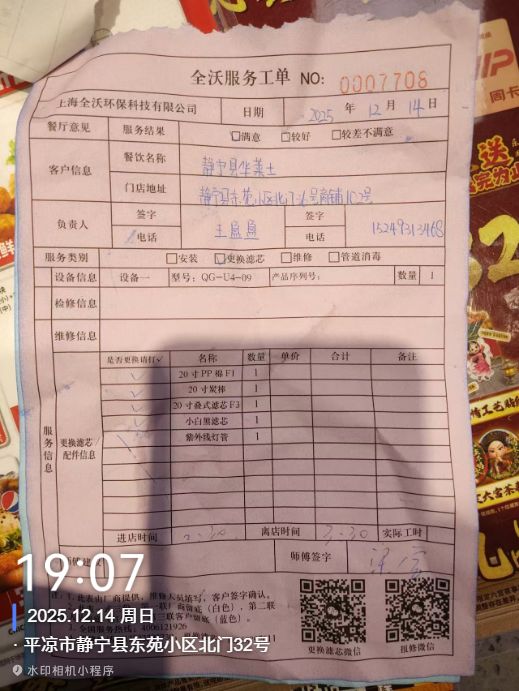 全沃服务工单 NO: 0007708
上海全沃环保科技有限公司 日期 2025 年 12 月 14 日
餐厅意见 服务结果 □满意 □较好 □较差不满意
客户信息 餐饮名称 静宁县华莱士
门店地址 静宁县东苑小区北门 号商铺102号
负责人 签字 电话 王盈盈 签字 电话 15249313468
服务类别 □安装 □更换滤芯 □维修 □管道消毒
设备信息 设备一 型号: QG-U4-09 产品序列号: 数量 1
检修信息
维修信息
服务信息 更换滤芯配件信息
是否更换请打√ 名称 数量 单价 合计 备注
√ 20寸PP棉F1 1
√ 20寸炭棒 1
√ 20寸叠式滤芯F3 1
√ 小白黑滤芯 1
√ 紫外线灯管 1
进店时间 2:30 离店时间 3:30 实际工时
师傅签字
注: 1.此表由厂商提供, 维修人员填写, 客户签字确认。
厂商留底(白色), 第二联
三联客户留底(蓝色)。
全国服务热线: 4006121926
更换滤芯微信 报修微信
19:07
2025.12.14 周日
平凉市静宁县东苑小区北门32号
水印相机小程序
周卡
送